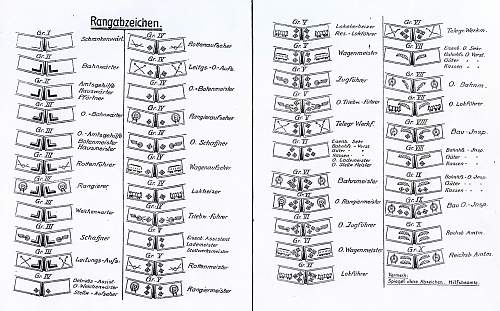 Rangabzeichen.
Gr. I
Schrankenwärt.
Gr. II
Bahnwärter
Gr. II
Amtsgehilfe
Hauswärter
Pförtner
Gr. III
O.-Bahnwärter
Gr. III
O.-Amtsgehilfe
Hausmeister
Gr. III
Rottenführer
Gr. III
Rangierer
Gr. III
Weichenwärter
Gr. III
Schaffner
Gr. III
Leitungs-Aufs.
Gr. IV
Betriebs-Assist.
O.-Weichenwärter
Stellw.-Aufseher
Gr. IV
Rottenaufseher
Gr. IV
Leitgs-O.-Aufs.
Gr. IV
O.-Bahnmeister
Gr. IV
Rangieraufseher
Gr. IV
O. Schaffner
Gr. IV
Wagenaufseher
Gr. IV
Lokheizer
Gr. IV
Triebw.-führer
Gr. V
Eisenb. Assistent
Lademeister
Stellwerksmeister
Gr. V
Rottenmeister
Gr. V
Rangiermeister
Gr. V
Lokoberheizer
Res.-Lokführer
Gr. V
Wagenmeister
Gr. V
Zugführer
Gr. V
O. Triebw.-führer
Gr. V
Telegr Werkf.
Gr. VI
Eisenb. Sekr
Bahnhofs-Vorst
Güter
Kassen
O. Lademeister
Gr. VI
Bahnmeister
Gr. VI
O. Rangiermeister
Gr. VI
O. Zugführer
Gr. VI
O. Wagenmeister
Gr. VI
Lokführer
Gr. VI
Telegr. Werkm.
Gr. VII
Eisenb. O. Sekr
Bahnhfs O. Vorst.
Güter
Kassen
Gr. VII
O. Bahnm.
Gr. VII
O. Lokführer
Gr. VIII
Bau-Jnsp.
Gr. VIII
Bahnhfs.-Jnsp.
Güter
Kassen
Gr. IX
Bahnhfs.-O-Jnsp.
Güter
Kassen
Gr. IX
Bau O.-Jnsp.
Gr. X
Reichsb Amtm.
Gr. XI
Reichsb Amtm.
Vermerk:
Spiegel ohne Abzeichen: Hilfsbeamte.